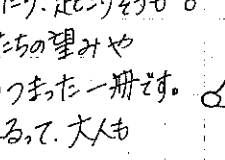 たちの望みや
つまった一冊です。
るって、大人も